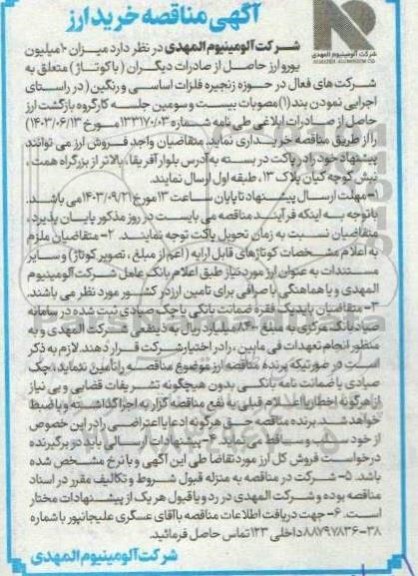 آگهی مناقصه خرید ارز
شرکت آلومینیوم المهدی
شرکت آلومینیوم المهدی در نظر دارد میزان ۱۰ میلیون
یورو ارز حاصل از صادرات دیگران (با کوتاژ) متعلق به
شرکت های فعال در حوزه زنجیره فلزات اساسی و رنگین (در راستای
اجرایی نمودن بند (۱) مصوبات بیست و سومین جلسه کارگروه بازگشت ارز
حاصل از صادرات ابلاغی طی نامه شماره ۱۳۳۱۷۰/۰۳ مورخ ۱۴۰۳/۰۶/۱۳)
را از طریق مناقصه خریداری نماید. متقاضیان واجد فروش ارز می توانند
پیشنهاد خود را در پاکت در بسته به آدرس بلوار آفریقا، بالاتر از بزرگراه همت،
نبش کوچه کیان پلاک ۱۳، طبقه اول ارسال نمایند.
۱- مهلت ارسال پیشنهاد تا پایان ساعت ۱۳ مورخ ۱۴۰۳/۰۹/۲۱ می باشد.
با توجه به اینکه فرآیند مناقصه می بایست در روز مذکور پایان پذیرد،
متقاضیان نسبت به زمان تحویل پاکت توجه نمایند. ۲- متقاضیان ملزم
به اعلام مشخصات کوتاژهای قابل ارایه (اعم از مبلغ، تصویر کوتاژ) و سایر
مستندات به عنوان ارز مورد نیاز طبق اعلام بانک عامل شرکت آلومینیوم
المهدی و با هماهنگی با صرافی برای تامین ارز در کشور مورد نظر می باشند.
۳- متقاضیان باید یک فقره ضمانت بانکی یا چک صیادی ثبت شده در سامانه
صیاد بانک مرکزی به مبلغ ۸۴۰ میلیارد ریال به ذینفعی شرکت المهدی و به
منظور انجام تعهدات فی مابین، را در اختیار شرکت قرار دهند. لازم به ذکر
است در صورتیکه برنده مناقصه ارز موضوع مناقصه را تامین ننماید، چک
صیادی یا ضمانت نامه بانکی بدون هیچگونه تشریفات قضایی و بی نیاز
از هرگونه اخطار یا اعلام قبلی به نفع مناقصه گزار به اجرا گذاشته و یا ضبط
خواهد شد. برنده مناقصه حق هرگونه ادعا یا اعتراضی را در این خصوص
از خود سلب و ساقط می نماید. ۴- پیشنهادات ارسالی باید در برگیرنده
درخواست فروش کل ارز مورد تقاضا طی این آگهی و با نرخ مشخص شده
باشد. ۵- شرکت در مناقصه به منزله قبول شروط و تکالیف مقرر در اسناد
مناقصه بوده و شرکت المهدی در رد و یا قبول هر یک از پیشنهادات مختار
است. ۶- جهت دریافت اطلاعات مناقصه با آقای عسگری علیجانپور با شماره
۳۸-۸۸۷۹۷۸۳۶ داخلی ۱۲۳ تماس حاصل فرمائید.
شرکت آلومینیوم المهدی